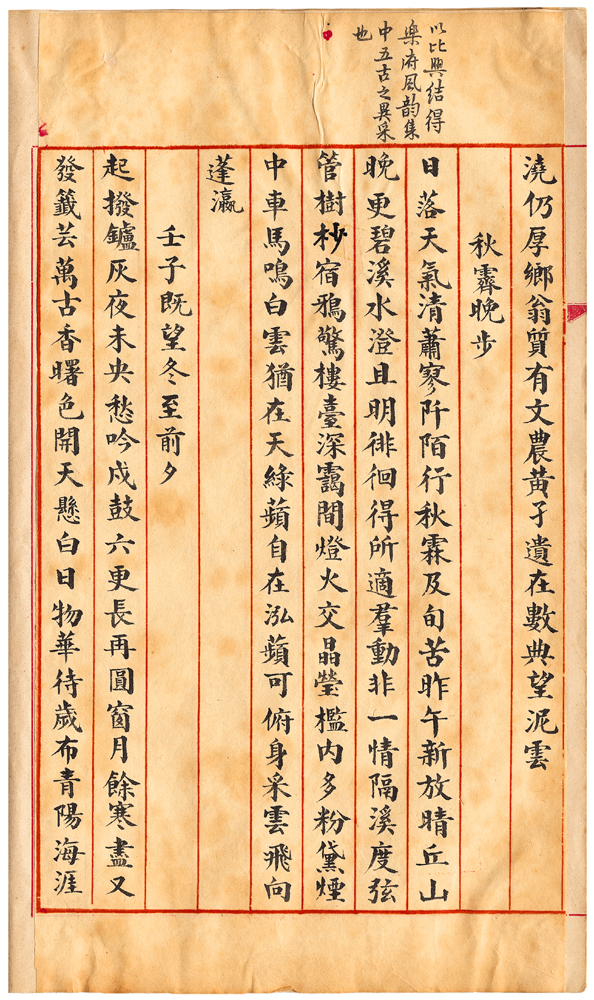 以比興結得
樂府風韵集
中五古之異采
也
澆仍厚鄉翁質有文農黃孑遺在數典望泥雲
秋霽晚步
日落天氣清蕭寥阡陌行秋霖及旬苦昨午新放晴丘山
晚更碧溪水澄且明徘徊得所適羣動非一情隔溪度弦
管樹杪宿鴉驚樓臺深靄間燈火交晶瑩檻內多粉黛煙
中車馬鳴白雲猶在天綠蘋自在泓蘋可俯身采雲飛向
蓬瀛
壬子既望冬至前夕
起撥鑪灰夜未央愁吟戍鼓六更長再圓窗月餘寒盡又
發籤芸萬古香曙色開天懸白日物華待歲布青陽海涯